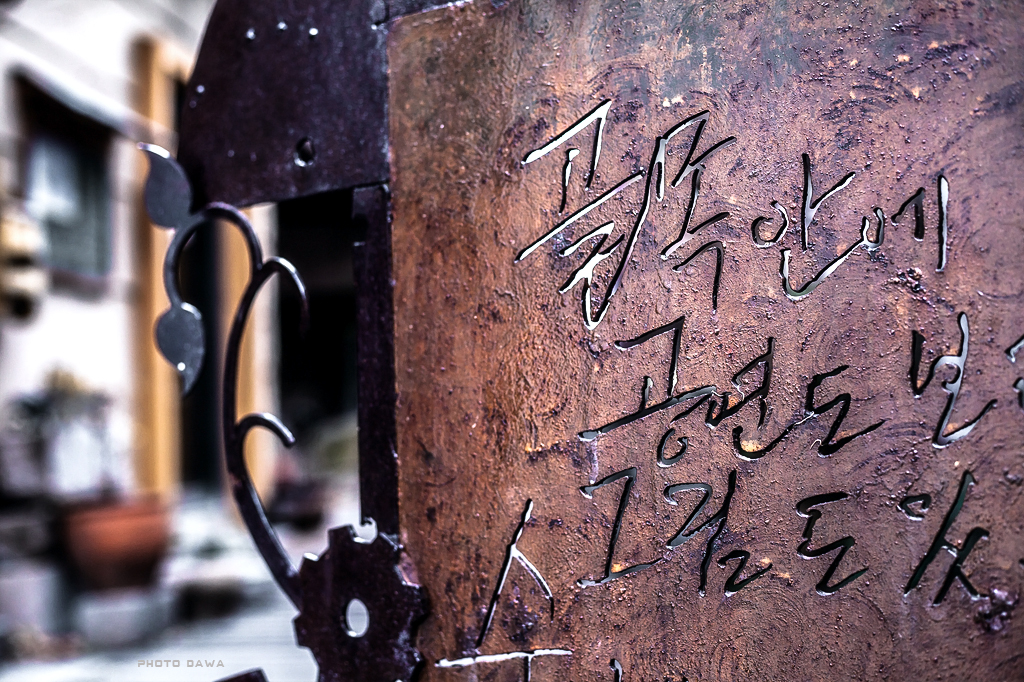 골목 안에
공연도 보
그림도 있
PHOTO DAWA